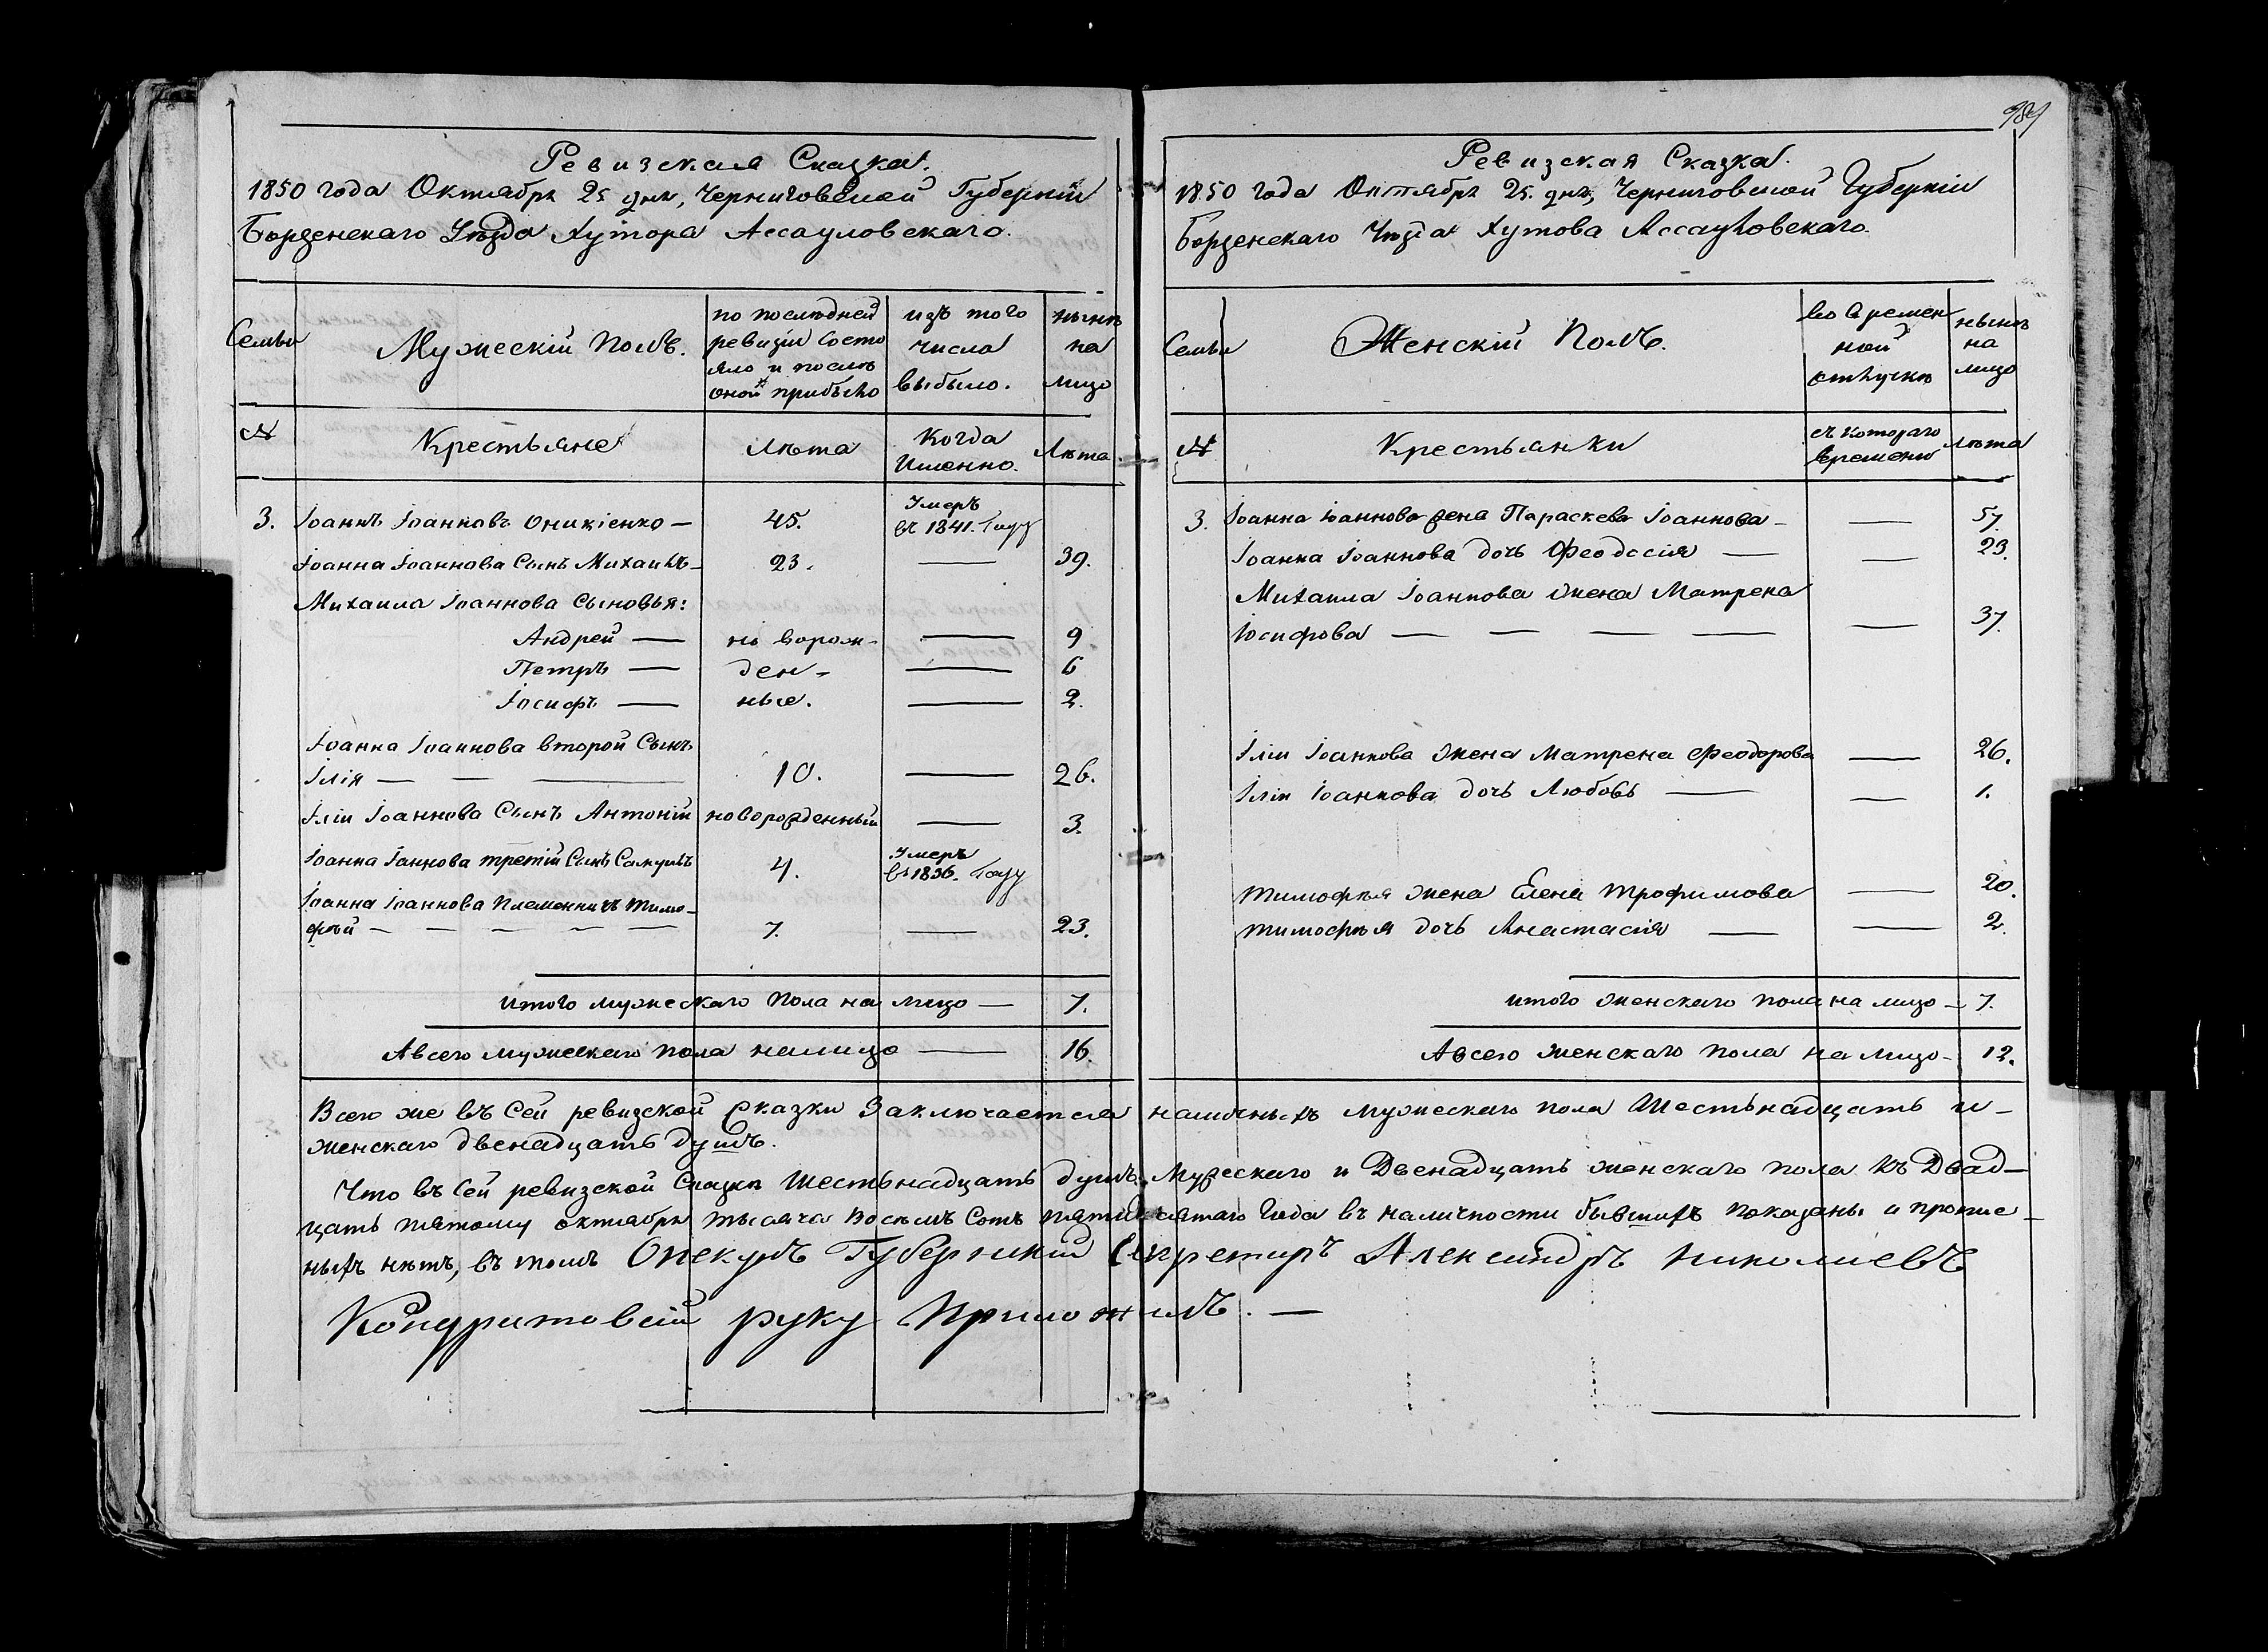 Ревизская Сказка.
1850 года Октября 25 дня, Черниговской Губерніи
Борзенскаго Уѣзда Хутора Ассауловскаго.
Семьи
Мужескій Полъ.
по послѣдней
ревизіи состо
яло и послѣ
оной прибыло
изъ того
числа
выбыло.
нынѣ
на
лицо
№
Крестьяне
Лѣта
Когда
Именно.
Лѣта.
3. Іоаннъ Іоанновъ Оникіенко — 45. Умеръ
въ 1841. Году
Іоанна Іоаннова Сынъ Михаилъ — 23. — 39.
Михаила Іоаннова Сыновья:
Андрей — но ворож- — 9
Петръ — ден- — 6
Іосифъ — ные. — 2.
Іоанна Іоаннова второй Сынъ
Ілія — — — 10. — 26.
Іліи Іоаннова Сынъ Антоній новорожденный — 3.
Іоанна Іаннова третій Сынъ Самуилъ 4. Умеръ
въ 1836. Году
Іоанна Іоаннова Племенникъ Тимо-
фѣй — — — — — 7. — 23.
Итого мужескаго пола на лицо — 7.
А всего мужескаго пола налицо — 16.
989
Ревизская Сказка.
1850 года Октября 25. дня, Черниговской Губерніи
Борзенскаго Уѣзда Хутова Ассауловскаго.
Семьи
Женскій Полъ.
во времен
ной
отлучкѣ
нынѣ
на
лицо
№
Крестьянки
съ котораго
времени
Лѣта
3. Іоанна Іоаннова жена Параскева Іоаннова — — 57.
Іоанна Іоаннова дочь Феодосія — — 23.
Михаила Іоаннова жена Матрена
Іосифова — — — — — 37.
Іліи Іоаннова жена Матрена Феодорова — 26.
Іліи Іоаннова дочь Любовь — — 1.
Тимофѣя жена Елена Трофимова — 20.
Тимофѣя дочь Анастасія — — 2.
Итого женскаго пола на лицо — 7.
А всего женскаго пола на лицо — 12.
Всего же въ сей ревизской сказки Заключается наличныхъ мужескаго пола Шестьнадцать и-
женскаго двенадцать душъ.
Что въ сей ревизской Сказки Шестьнадцать душъ Мужескаго и Двенадцать женскаго пола къ Двад-
цать пятому октября тысяча восемъ сотъ пятидесятаго Года въ наличности бывшихъ показаны и пропис-
ныхъ нѣтъ, въ томъ Опекунъ Губернскій Секретаръ Александръ Николаевъ
Кондратовскій руку Приложилъ. —